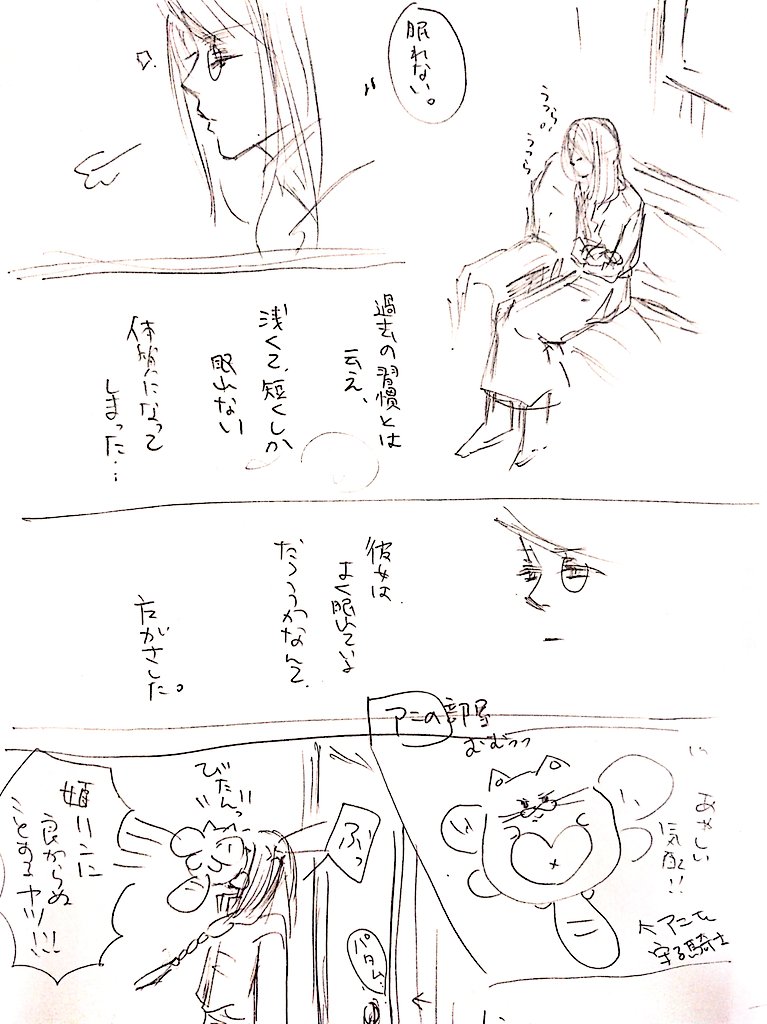 眠れない。
うつら
うつら
過去の習慣とは
云え、
浅くて、短くしか
眠れない
体質になって
しまった…
彼女は
よく眠れている
だろうかなんて、
アニの部屋
むむっっ
あやしい
気配!!
アニを
守る騎士
ぶっ
びたんっ
姫リンに
良からぬ
ことするヤツ!!!
パタム